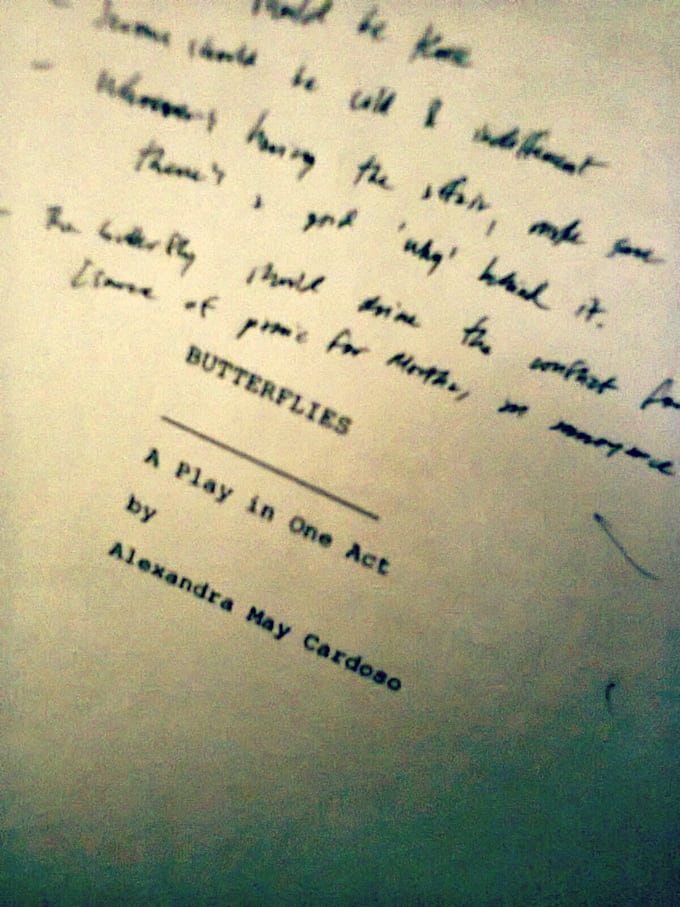 should be
- should be cold & indifferent
- Whoever's having the affair, make sure
there's a good 'why' behind it.
- The butterfly should drive the conflict
(source of panic for Martha, an annoyance
BUTTERFLIES
A Play in One Act
by
Alexandra May Cardoso